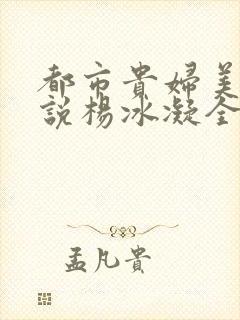 都市貴婦美
説楊冰凝全
孟凡貴